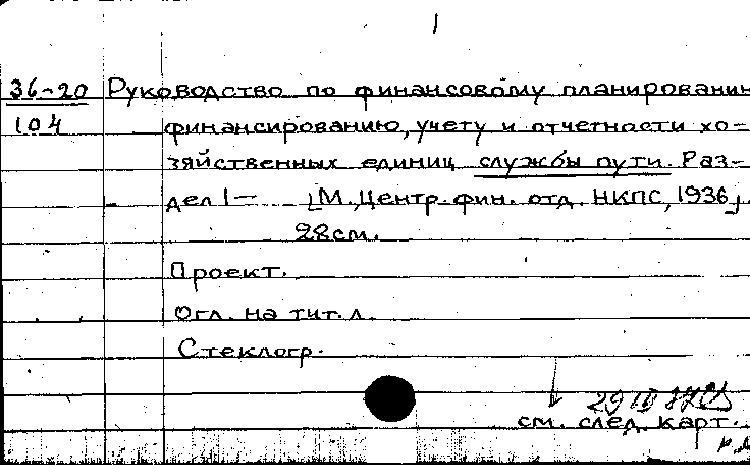 1
36-20 Руководство по финансовому планированию
104 финансированию, учету и отчетности хо-
зяйственных единиц службы пути. Раз-
дел 1— [М., Центр. фин. отд. НКПС, 1936].
28см.
Проект.
Огл. на тит. л.
Стеклогр.
см. след. карт.